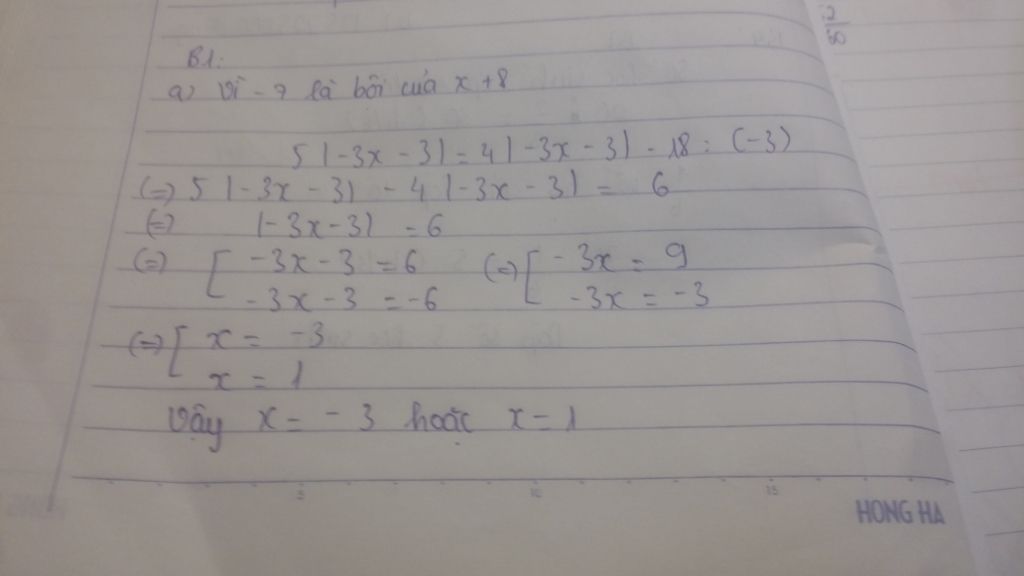 B1:
a) Vì - 7 là bội của x + 8
5 |-3x - 3| = 4 |-3x - 3| - 18 : (-3)
(=) 5 |-3x - 3| - 4 |-3x - 3| = 6
(=) |-3x - 3| = 6
(=) [ -3x - 3 = 6 (=) [ -3x = 9
-3x - 3 = -6 -3x = -3
(=) [ x = -3
x = 1
Vậy x = - 3 hoặc x = 1
5 10 15
HONG HA